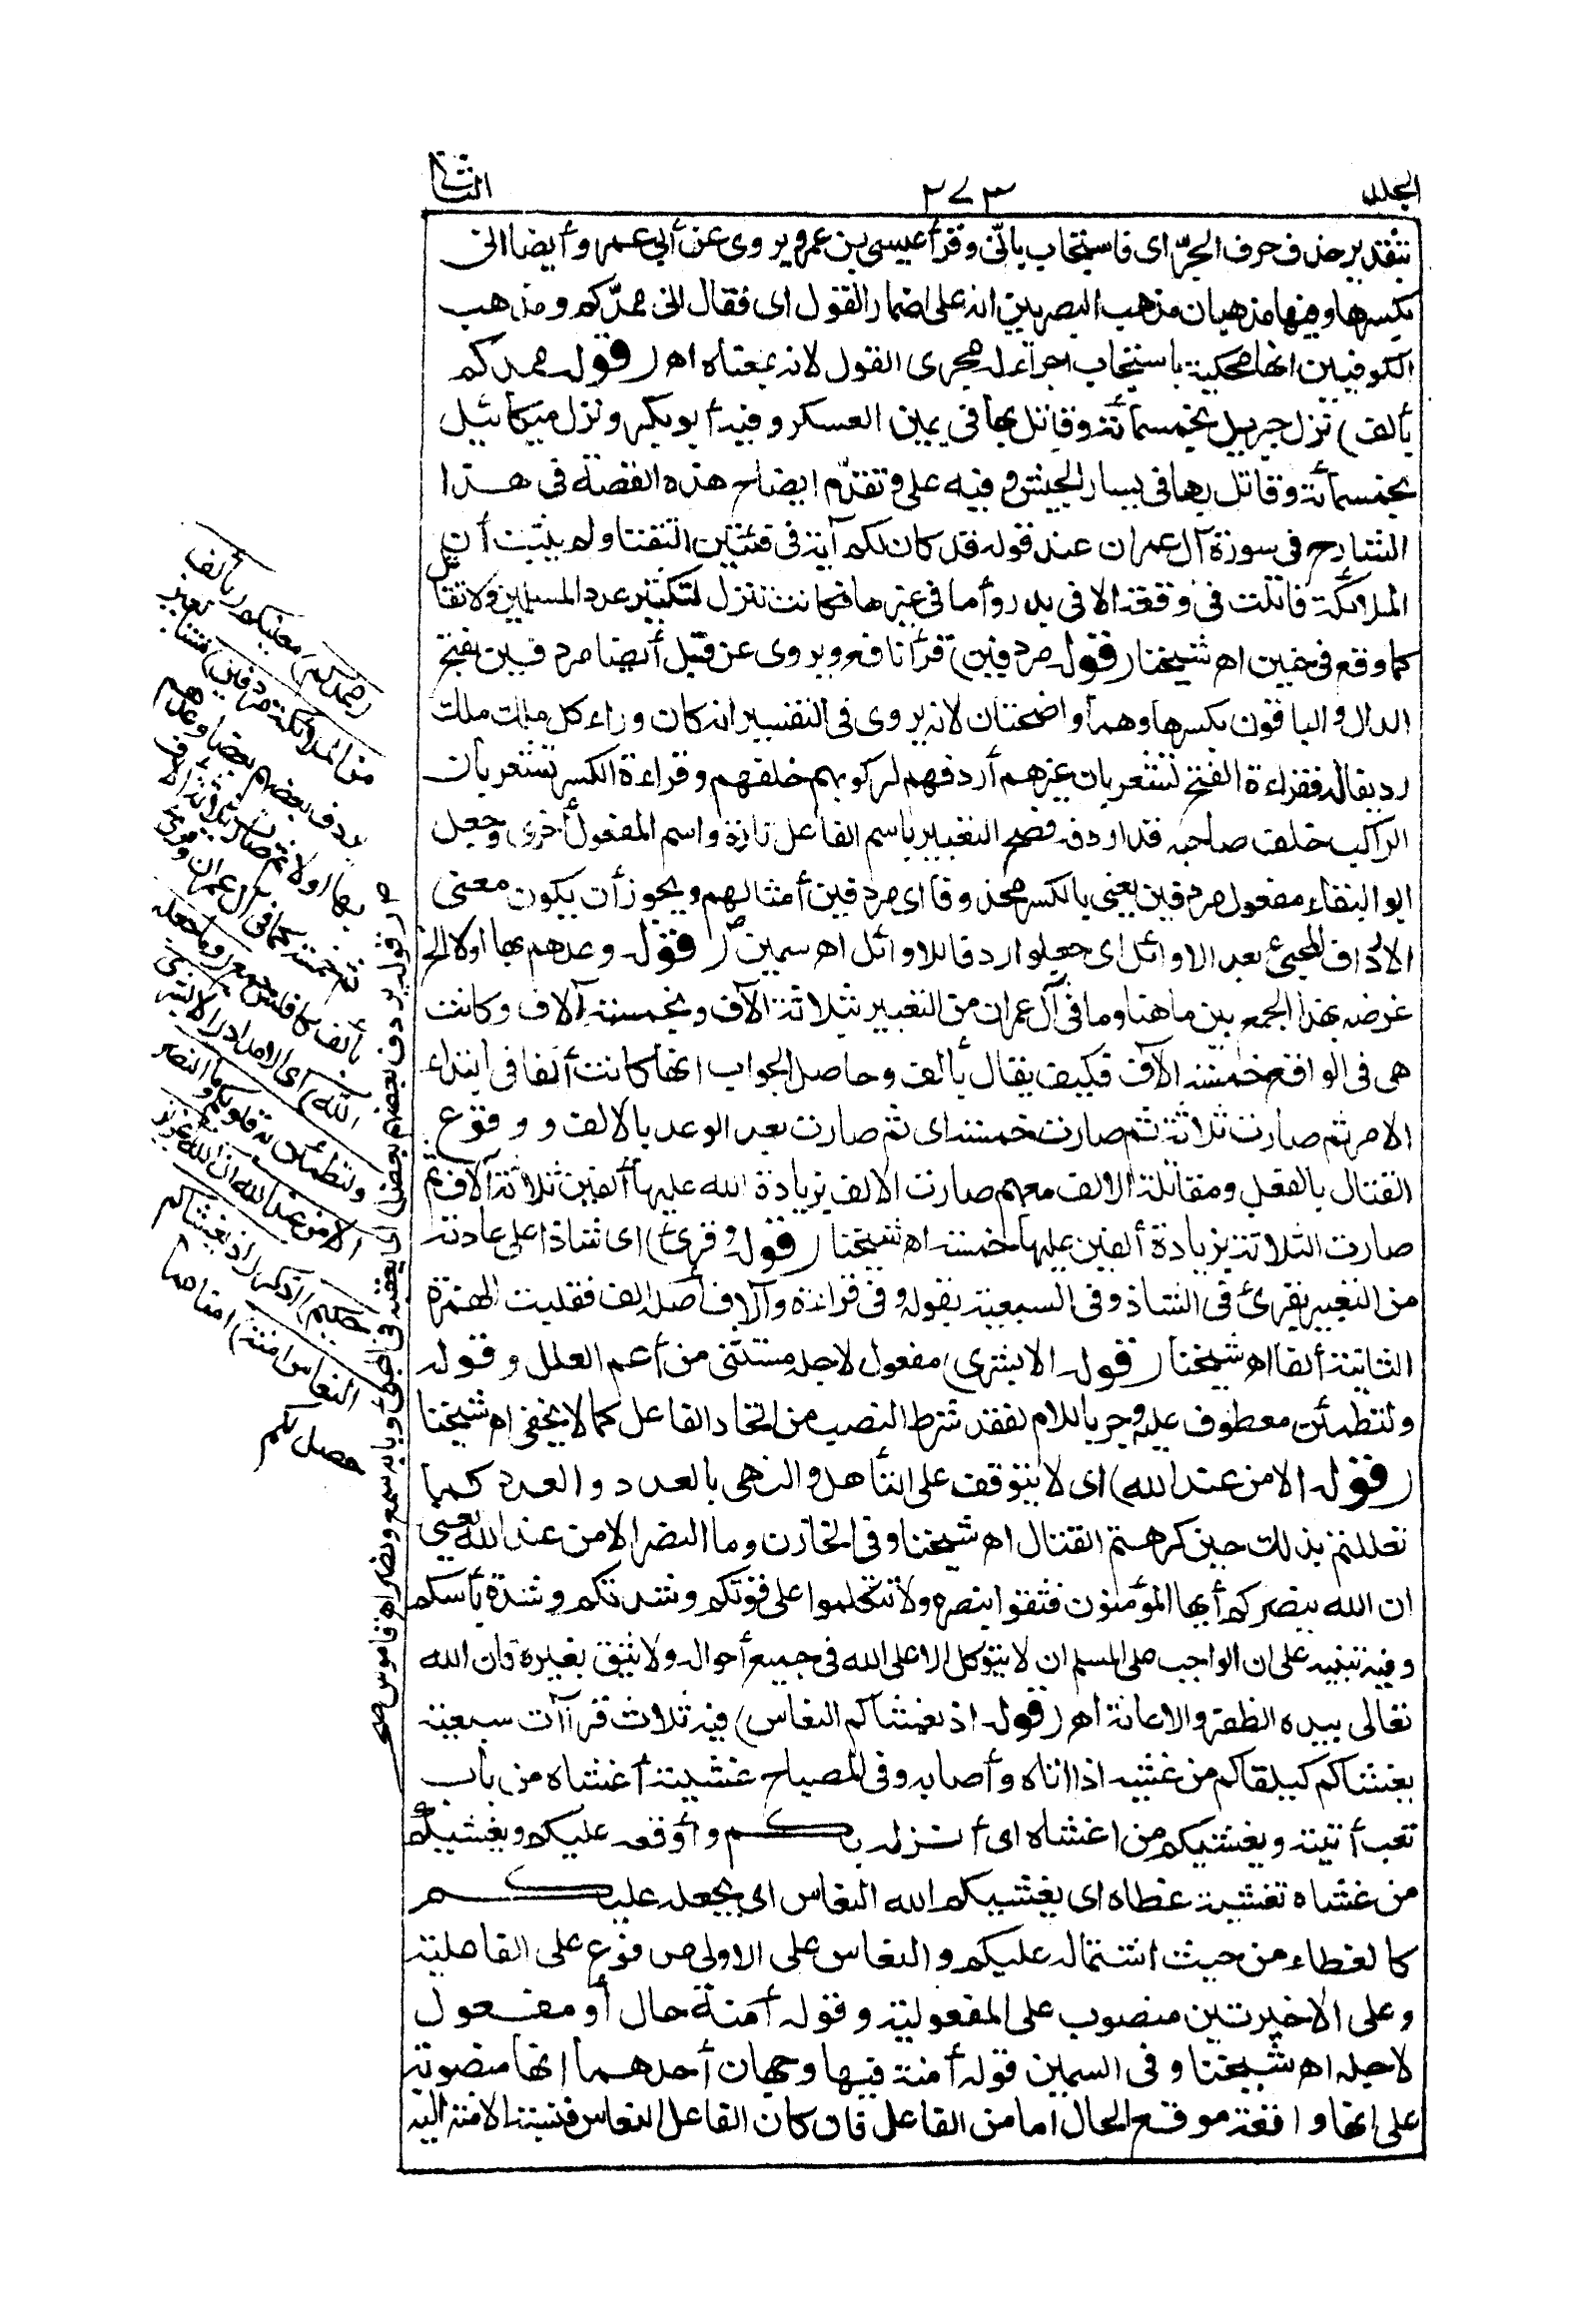 الجلد ٢٧٣ الثانى
بتقدير حذف حرف الجرّ اى فاستجاب بأنّى وقرأ عيسى بن عمر ويروى عن أبى عمرو أيضا انى
بكسرها وفيها مذهبان مذهب البصريين انه على اضمار القول اى فقال انى ممدّكم ومذهب
الكوفيين انها محكية باستجاب اجراء له مجرى القول لانه بمعناه اھ (قوله ممدكم
بألف) نزل جبريل بخمسمائة وقاتل بها فى يمين العسكر وفيه أبو بكر ونزل ميكائيل
بخمسمائة وقاتل بها فى يسار الجيش وفيه على وتقدّم ايضاح هذه القصة فى هذا
الشارح فى سورة آل عمران عند قوله قد كان لكم آية فى فئتين التقتا ولم يثبت أن
الملائكة قاتلت فى وقعة الا فى بدر وأما فى غيرها فكانت تنزل لتكثير عدد المسلمين ولا تقاتل
كما وقع فى حنين اھ شيخنا (قوله مردفين) قرأ نافع ويروى عن قنبل أيضا مردفين بفتح
الدال والباقون بكسرها وهما واضحتان لانه يروى فى التفسير انه كان وراء كل ملك ملك
رديفا له فقراءة الفتح تشعر بان غيرهم أردفهم لركوبهم خلفهم وقراءة الكسر تشعر بان
الراكب خلف صاحبه قد اردفه فصح التعبير باسم الفاعل تارة واسم المفعول أخرى وجعل
ابو البقاء مفعول مردفين يعنى بالكسر محذوفا اى مردفين أمثالهم ويجوز أن يكون معنى
الارداف المجئ بعد الاوائل اى جعلوا ردفا للاوائل اھ سمين (قوله وعدهم بها اولا الخ
غرضه بهذا الجمع بين ما هنا وما فى آل عمران من التعبير بثلاثة آلاف وبخمسة آلاف وكانت
هى فى الواقع خمسة آلاف فكيف يقال بألف وحاصل الجواب انها كانت ألفا فى ابتداء
الامر ثم صارت ثلاثة ثم صارت خمسة اى ثم صارت بعد الوعد بالالف ووقوع
القتال بالفعل ومقاتلة الالف معهم صارت الالف بزيادة الله عليها ألفين ثلاثة آلاف ثم
صارت الثلاثة بزيادة ألفين عليها خمسة اھ شيخنا (قوله وقرئ) اى شاذا على عادته
من التعبير بقرئ فى الشاذ وفى السبعية بقوله وفى قراءة وآلاف أصله الف فقلبت الهمزة
الثانية ألفا اھ شيخنا (قوله الا بشرى) مفعول لاجله مستثنى من أعم العلل وقوله
ولتطمئن معطوف عليه وجر باللام لفقد شرط النصب من اتحاد الفاعل كما لا يخفى اھ شيخنا
(قوله الا من عند الله) اى لا يتوقف على التأهل والتهى بالعدد والعدد كما
تعللتم بذلك حين كرهتم القتال اھ شيخنا وفى الخازن وما النصر الا من عند الله يعنى
ان الله ينصركم أيها المؤمنون فثقوا بنصره ولا تتكلوا على قوّتكم وشدتكم وشدة بأسكم
وفيه تنبيه على ان الواجب على المسلم ان لا يتوكل الا على الله فى جميع أحواله ولا يثق بغيره فان الله
تعالى بيده الظفر والاعانة اھ (قوله اذ يغشاكم النعاس) فيه ثلاث قراآت سبعية
يغشاكم كيلقاكم من غشيه اذا اتاه وأصابه وفى المصباح غشيته أغشاه من باب
تعب أتيته ويغشيكم من اغشاه اى أنزله بكم وأوقعه عليكم ويغشيكم
من غشاه تغشية غطاه اى يغشيكم الله النعاس اى يجعله عليكم
كالغطاء من حيث اشتماله عليكم والنعاس على الاولى مرفوع على الفاعلية
وعلى الاخيرتين منصوب على المفعولية وقوله أمنة حال أو مفعول
لاجله اھ شيخنا وفى السمين قوله أمنة فيها وجهان أحدهما انها منصوبة
على انها واقعة موقع الحال اما من الفاعل فان كان الفاعل النعاس فنسبة الامنة اليه
(ممدكم) معينكم (بألف
من الملائكة مردفين) متتابعين
يردف بعضهم بعضا وعدهم
بها اولا ثم صارت ثلاثة آلاف
ثم خمسة كما فى آل عمران وقرئ
بآلف كأفلس جمع (وما جعله
الله) اى الامداد (الا بشرى
ولتطمئن به قلوبكم وما النصر
الا من عند الله ان الله عزيز
حكيم) اذكر (اذ يغشاكم
النعاس امنة) امنا مما
حصل لكم
قوله يردف بعضهم بعضا اى يعقبه فى المجئ وبابه سمع ونصر اھ قاموس